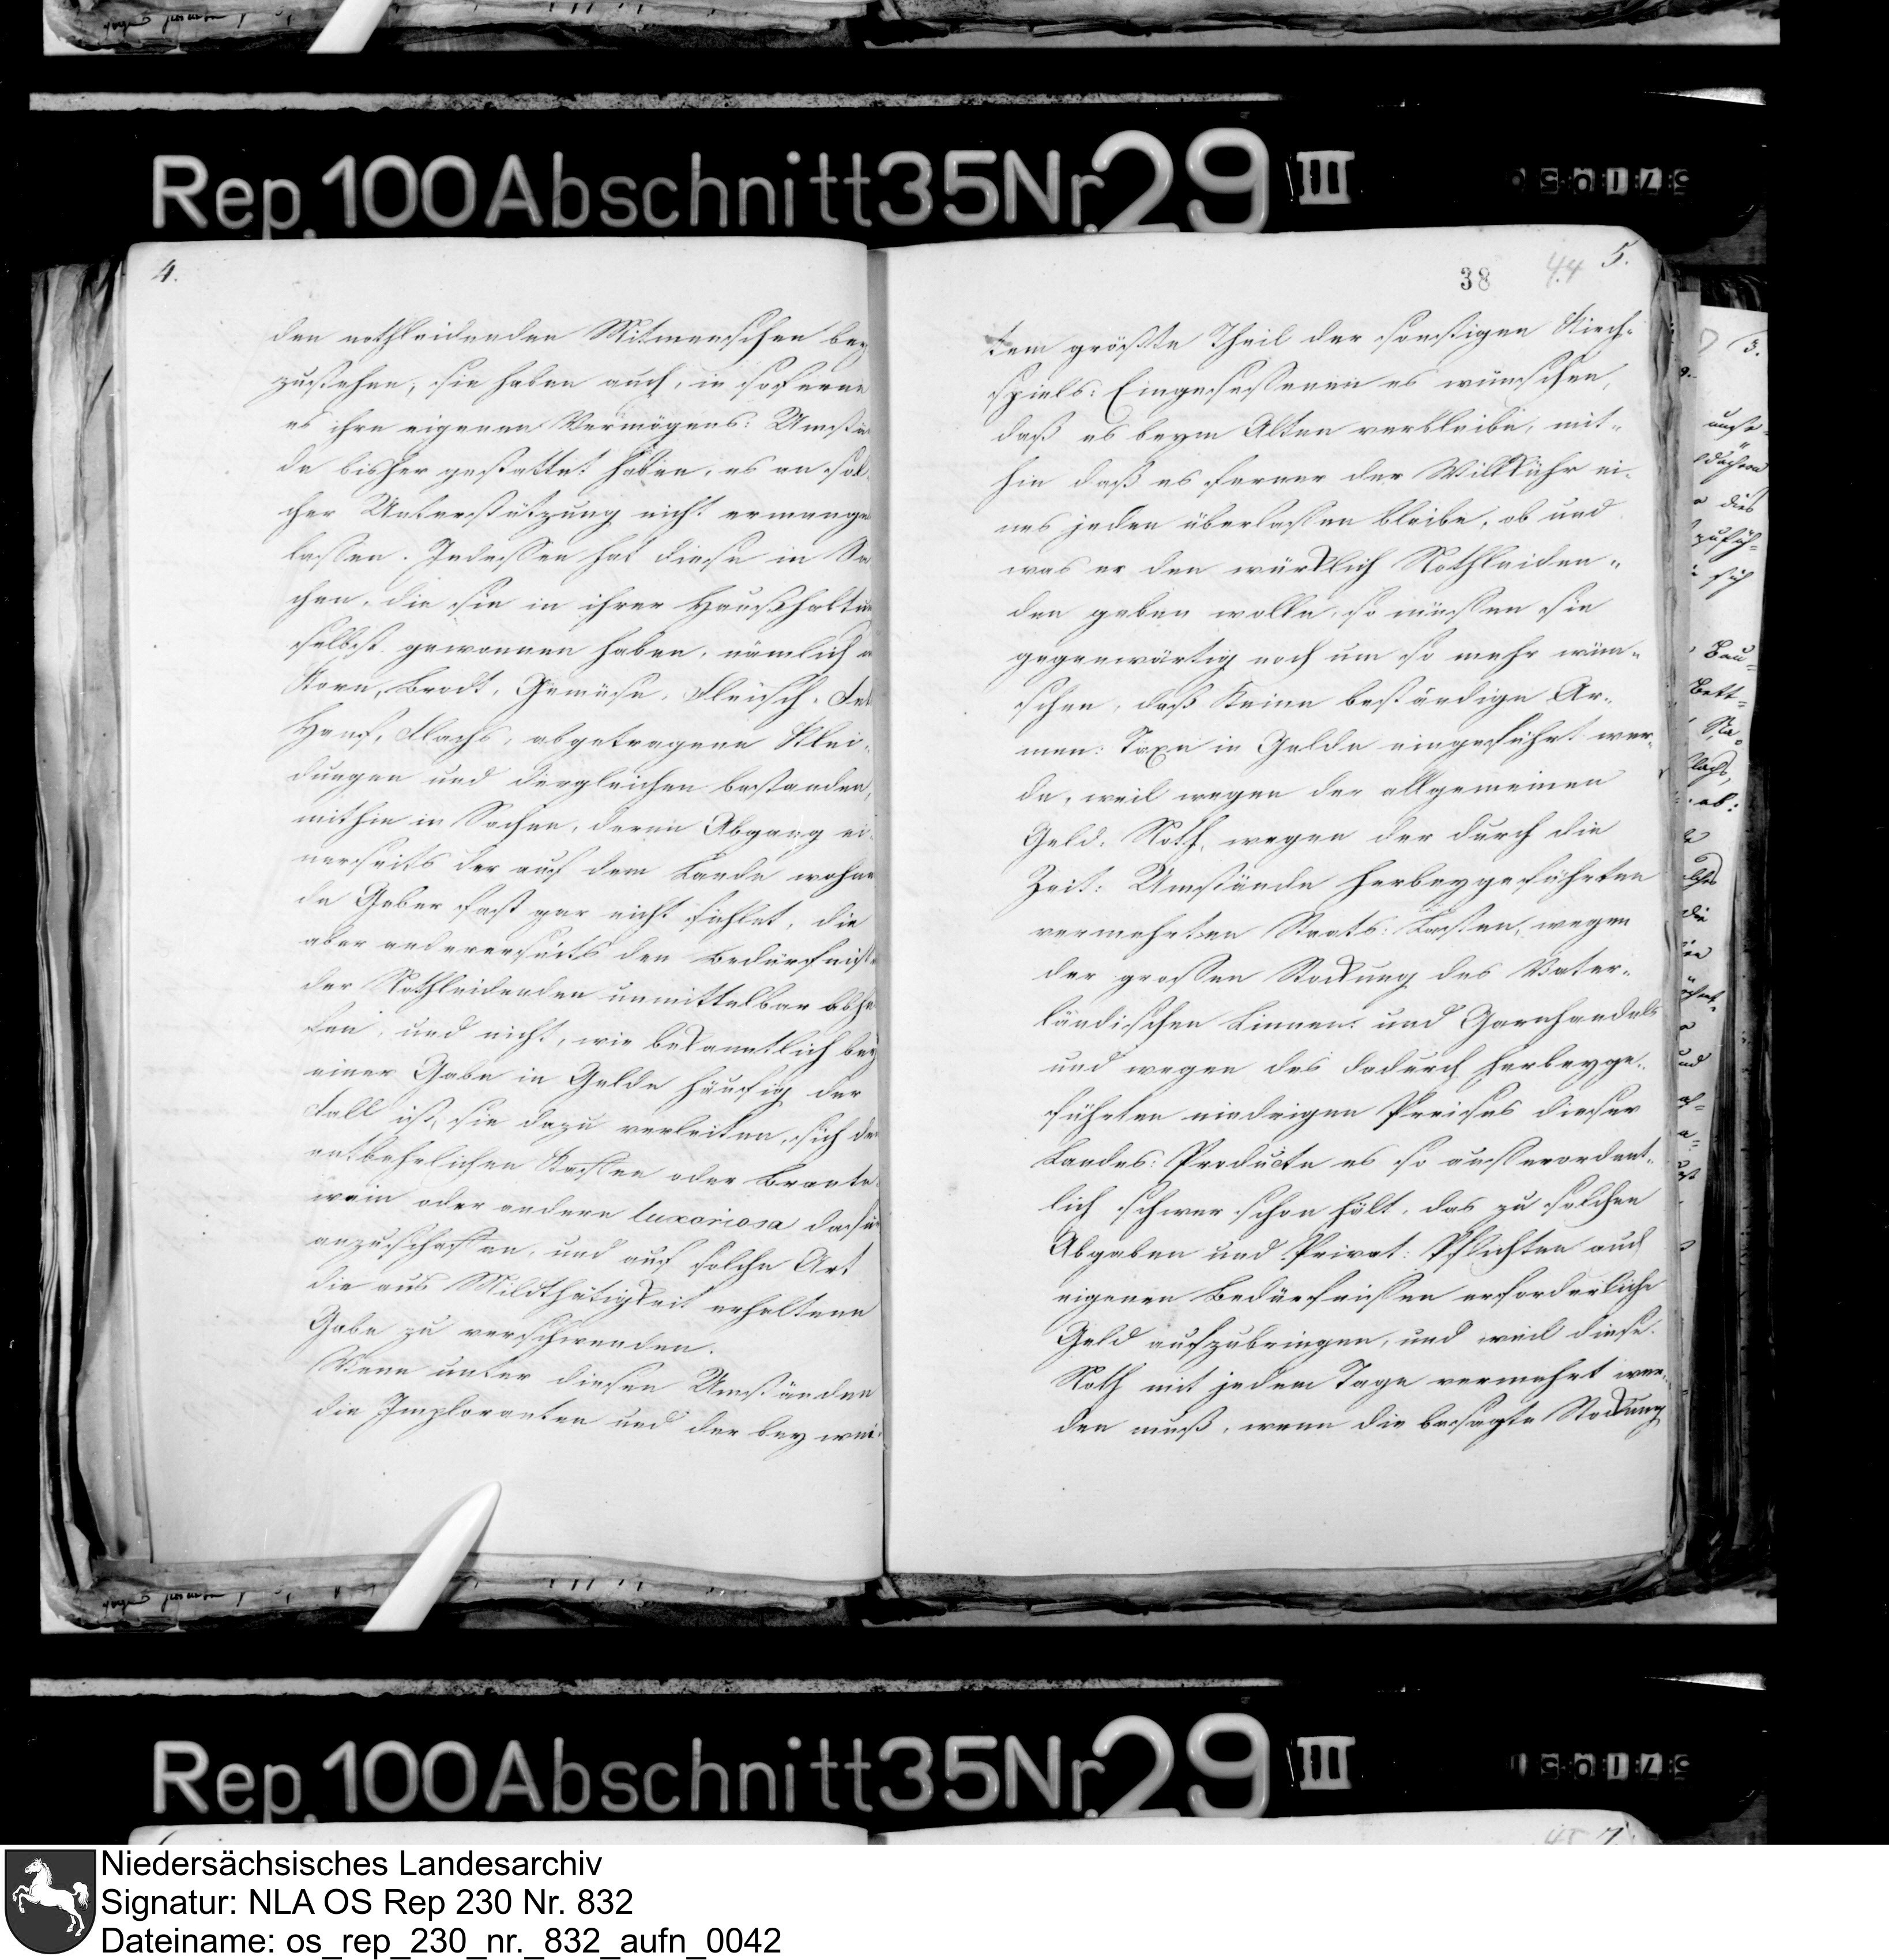 Rep. 100 Abschnitt 35 Nr. 29 III
4.
den nothleidenden Mitmenschen bey
zustehen; sie haben auch, in soferne
es ihre eigenen Vermögens: Umstän
de bisher gestattet haben, es an sol
cher Unterstützung nicht ermangel
lassen. Indessen hat diese in Sa
chen, die sie in ihrer Haußhaltun
selbst gewonnen haben, nämlich
Korn, Brodt, Gemüse, Fleisch, Fet
Hanf, Flachs, abgetragene Klei„
dungen und dergleichen bestanden,
mithin in Sachen, deren Abgang ei„
nerseits der auf dem Lande wohnen
de Geber fast gar nicht fühlet, die
aber andererseits den Bedürfniße
der Nothleidenden unmittelbar abhe
fen, und nicht, wie bekanntlich bey
einer Gabe in Gelde häufig der
Fall ist, sie dazu verleiten, sich den
entbehrlichen Kaffee oder Brante
wein oder andere luxoriosa dafür
anzuschaffen, und auf solche Art
die aus Mildthätigkeit erhaltene
Gabe zu verschwenden.
Wenn unter diesen Umständen
die Imploranten und der bey wei:
38 44 5.
tem größte Theil der sonstigen Kirch„
spiels: Eingesessenen es wünschen,
daß es beym Alten verbleibe, mit„
hin daß es ferner der Willkühr ei„
nes jeden überlassen bleibe, ob und
was er den würklich Nothleiden„
den geben wolle, so müssen sie
gegenwärtig noch um so mehr wün„
schen, daß keine beständige Ar„
men: Taxe in Gelde eingeführt wer„
de, weil wegen der allgemeinen
Geld: Noth, wegen der durch die
Zeit: Umstände herbeygeführten
vermehrten Staats: Lasten, wegen
der grossen Stockung des Vater„
ländischen Linnen: und Garnhandels
und wegen des dadurch herbeyge„
führten niedrigen Preises dieser
Landes: Producte es so ausserordent„
lich schwer schon hält, das zu solchen
Abgaben und Privat: Pflichten auch
eigenen Bedürfnissen erforderliche
Geld aufzubringen, und weil diese
Noth mit jedem Tage vermehrt wer„
den muß, wenn die besagte Stockung
Rep. 100 Abschnitt 35 Nr. 29 III
Niedersächsisches Landesarchiv
Signatur: NLA OS Rep 230 Nr. 832
Dateiname: os_rep_230_nr._832_aufn_0042